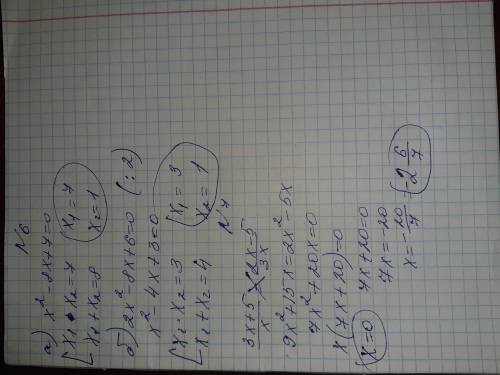 N6
а) x² - 8x + 7 = 0
[ x₁ · x₂ = 7   x₁ = 7
[ x₁ + x₂ = 8   x₂ = 1
б) 2x² - 8x + 6 = 0 (: 2)
x² - 4x + 3 = 0
[ x₁ · x₂ = 3   x₁ = 3
[ x₁ + x₂ = 4   x₂ = 1
N7
(3x + 5)/x = (2x - 5)/3x
9x² + 15x = 2x² - 5x
7x² + 20x = 0
x(7x + 20) = 0
x = 0   7x + 20 = 0
7x = -20
x = -20/7 = -2 6/7